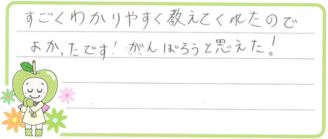 すごくわかりやすく教えてくれたので
よかったです！がんばろうと思えた！